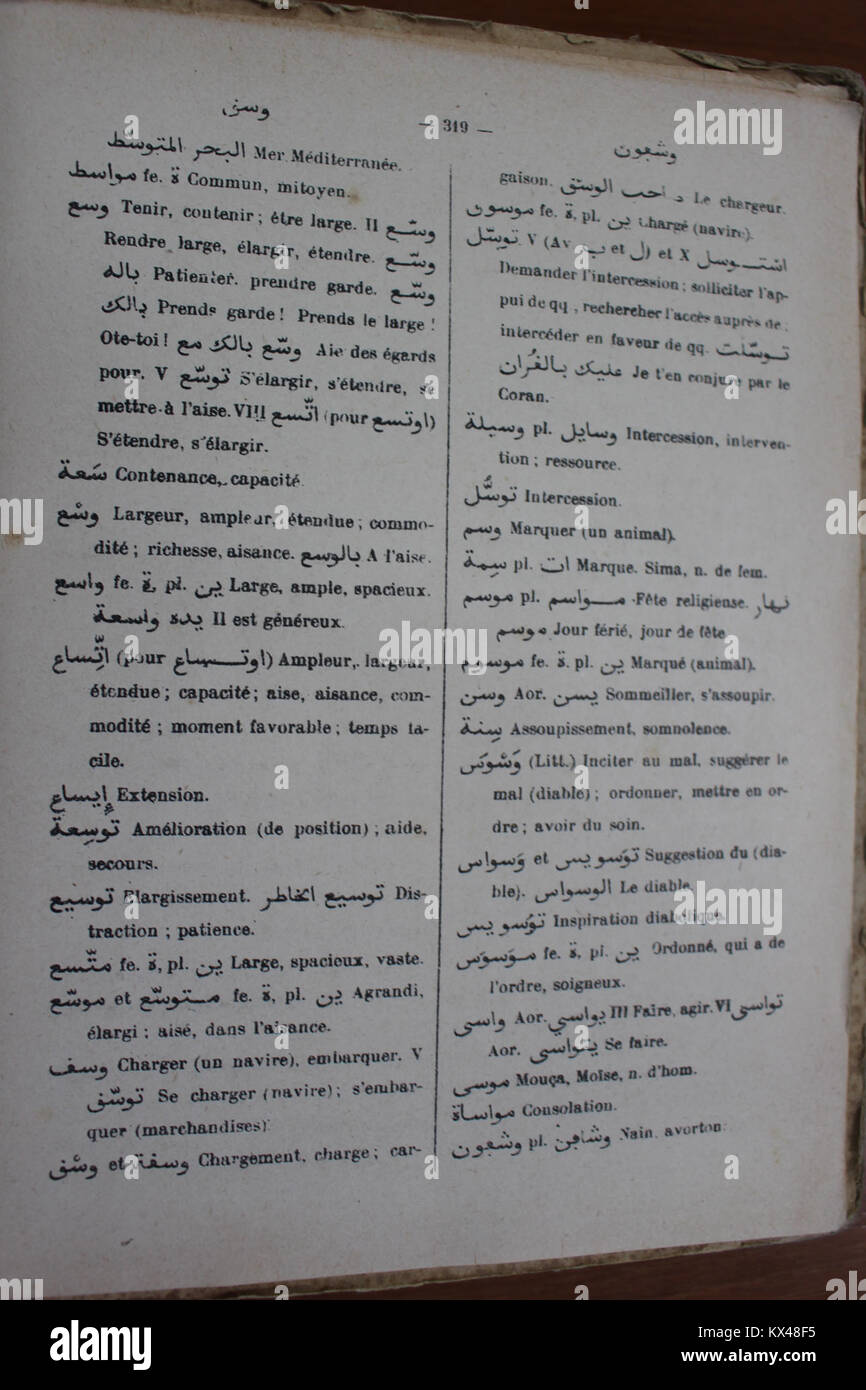 وسق
— 319 —
وشعون
البحر المتوسّط Mer Méditerranée.
مواسط fe. ة Commun, mitoyen.
وسع Tenir, contenir ; étre large. II وسّع
Rendre large, élargir, étendre. وسّع
باله Patienter. prendre garde. وسّع
بالك Prends garde ! Prends le large !
Ote-toi ! وسّع بالك مع Aie des égards
pour. V توسّع S'élargir, s'étendre, se
mettre à l'aise. VIII اتّسع (pour اوتسع)
S'étendre, s'élargir.
سَعة Contenance, capacité
وسْع Largeur, ampleur, étendue ; commo-
dité ; richesse, aisance. بالوسع A l'aise.
واسع fe. ة, pl. ين Large, ample, spacieux.
يده واسعة Il est généreux.
اتّساع (pour اوتساع) Ampleur, largeur,
étendue ; capacité ; aise, aisance, com-
modité ; moment favorable ; temps fa-
cile.
إيساع Extension.
توسِعة Amélioration (de position) ; aide,
secours.
توسيع Elargissement. توسيع الخاطر Dis-
traction ; patience.
متّسع fe. ة, pl. ين Large, spacieux, vaste.
موسّع et متوسّع fe. ة, pl. ين Agrandi,
élargi ; aisé, dans l'aisance.
وسق Charger (un navire), embarquer. V
توسّق Se charger (navire) ; s'embar-
quer (marchandises)
وسْق et وسقة Chargement, charge ; car-
gaison. صاحب الوسق Le chargeur.
موسوق fe. ة, pl. ين Chargé (navire).
توسّل V (Av. ب et ل) et X استوسل
Demander l'intercession ; solliciter l'ap-
pui de qq , rechercher l'accès auprès de ;
intercéder en faveur de qq. توسّلت
عليك بالقُران Je t'en conjure par le
Coran.
وسيلة pl. وسايل Intercession, interven-
tion ; ressource.
توسُّل Intercession.
وسم Marquer (un animal).
سِمة pl. ات Marque. Sima, n. de fem.
موسم pl. مواسم Fête religieuse. نهار
موسم Jour férié, jour de fête
موسوم fe. ة. pl. ين Marqué (animal).
وسن Aor. يسن Sommeiller, s'assoupir.
سِنة Assoupissement, somnolence.
وَسْوَس (Litt.) Inciter au mal, suggérer le
mal (diable) ; ordonner, mettre en or-
dre ; avoir du soin.
وَسواس et توَسويس Suggestion du (dia-
ble). الوسواس Le diable.
توُسويس Inspiration diabolique.
موَسوَس fe. ة, pl. ين Ordonné, qui a de
l'ordre, soigneux.
واسى Aor. يواسي III Faire, agir. VI تواسى
Aor. يتواسى Se faire.
موسى Mouça, Moïse, n. d'hom.
مواساة Consolation.
وشعون pl. وشاعن Nain, avorton.
alamy
Image ID: KX48F5
www.alamy.com